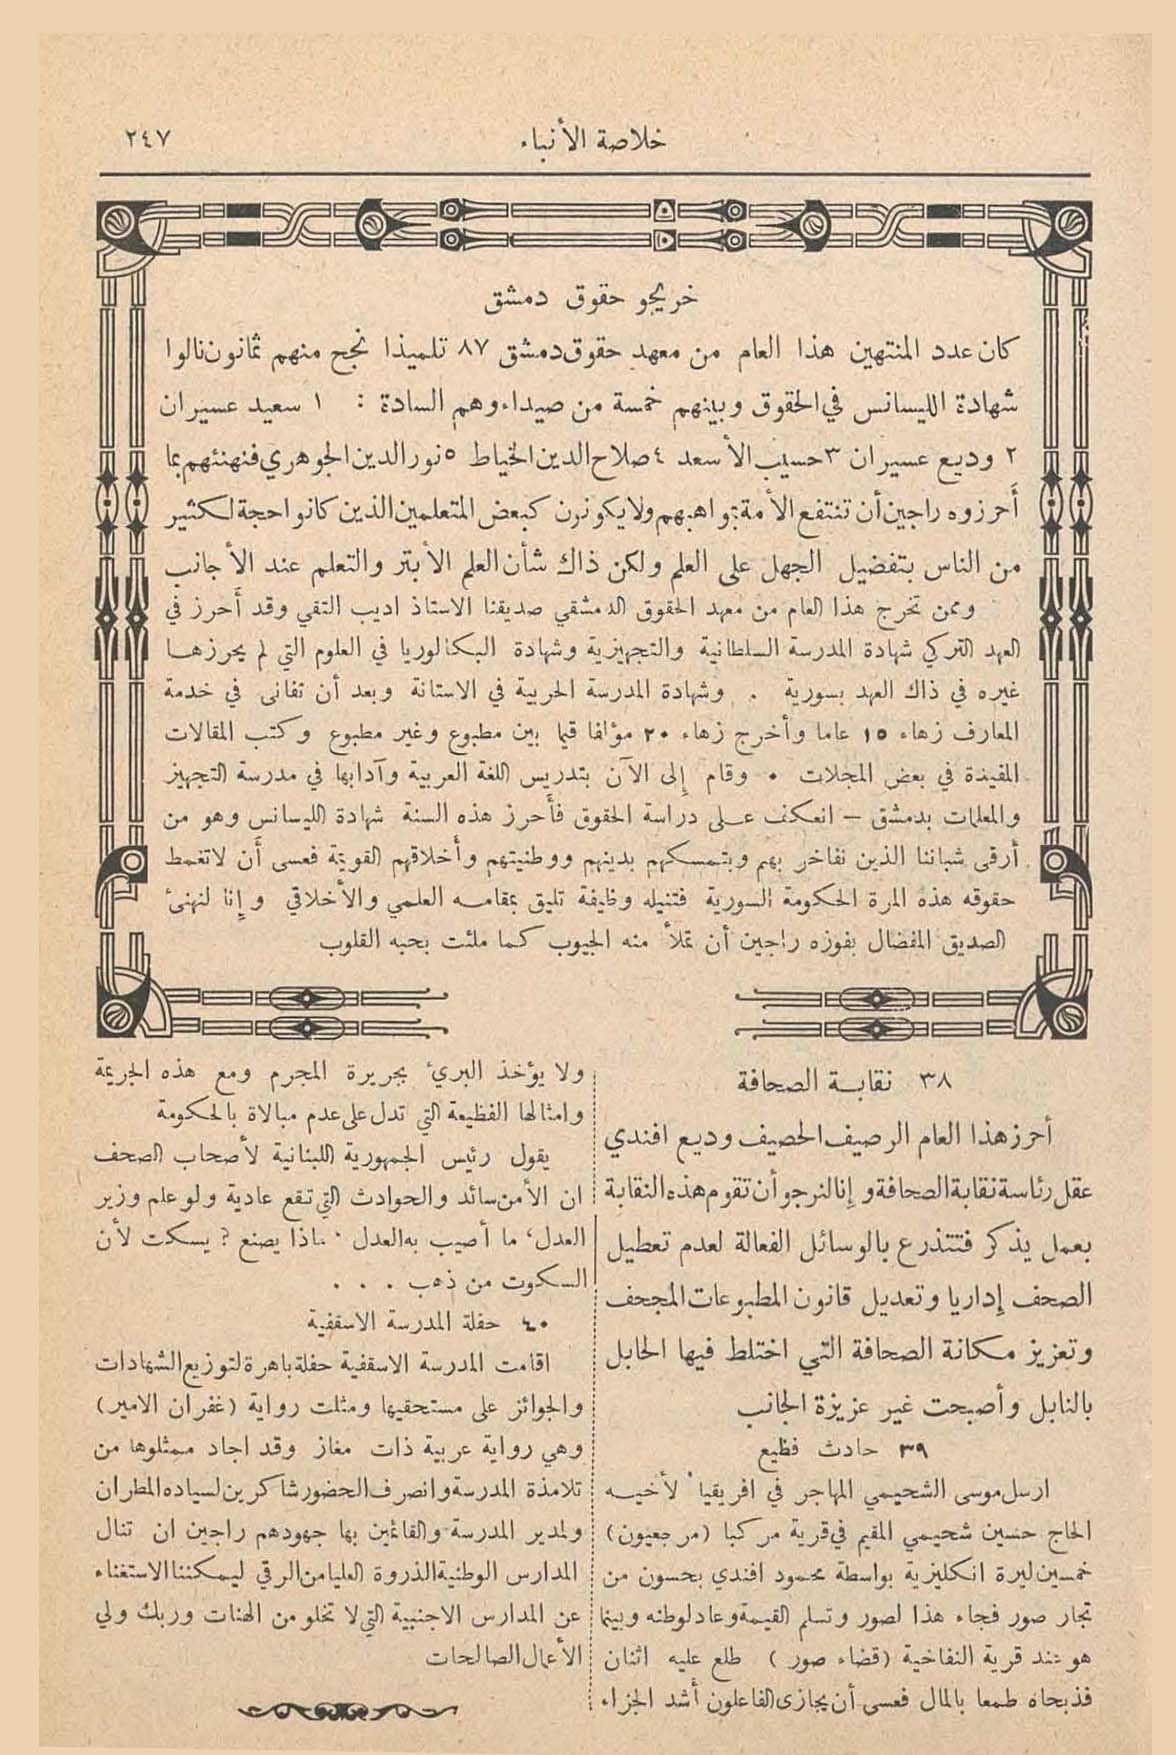 خلاصة الأنباء
٢٤٧
خريجو حقوق دمشق
كان عدد المنتهين هذا العام من معهد حقوق دمشق ٨٧ تلميذا نجح منهم ثمانون نالوا
شهادة الليسانس في الحقوق وبينهم خمسة من صيداء وهم السادة : ١ سعيد عسيران
٢ وديع عسيران ٣ حسيب الأسعد ٤ صلاح الدين الخياط ٥ نور الدين الجوهري فنهنئهم بما
أحرزوه راجين أن تنتفع الأمة بمواهبهم ولا يكونون كبعض المتعلمين الذين كانوا حجة لكثير
من الناس بتفضيل الجهل على العلم ولكن ذاك شأن العلم الأبتر والتعلم عند الأجانب
وممن تخرج هذا العام من معهد الحقوق الدمشقي صديقنا الاستاذ اديب التقي وقد أحرز في
العهد التركي شهادة المدرسة السلطانية والتجهيزية وشهادة البكالوريا في العلوم التي لم يحرزها
غيره في ذاك العهد بسورية . وشهادة المدرسة الحربية في الاستانة وبعد أن تفانى في خدمة
المعارف زهاء ١٥ عاما وأخرج زهاء ٢٠ مؤلفا قيما بين مطبوع وغير مطبوع وكتب المقالات
المفيدة في بعض المجلات • وقام إلى الآن بتدريس اللغة العربية وآدابها في مدرسة التجهيز
والمعلمات بدمشق – انعكف على دراسة الحقوق فأحرز هذه السنة شهادة الليسانس وهو من
أرقى شباننا الذين نفاخر بهم وبتمسكهم بدينهم ووطنيتهم وأخلاقهم القويمة فعسى أن لا تغمط
حقوقه هذه المرة الحكومة السورية فتنيله وظيفة تليق بمقامه العلمي والأخلاقي وإنا لنهنئ
الصديق المفضال بفوزه راجين أن تملأ منه الجيوب كما ملئت بحبه القلوب
٣٨ نقابة الصحافة
أحرز هذا العام الرصيف الحصيف وديع افندي
عقل رئاسة نقابة الصحافة وإنا لنرجو أن تقوم هذه النقابة
بعمل يذكر فتتذرع بالوسائل الفعالة لعدم تعطيل
الصحف إداريا وتعديل قانون المطبوعات المجحف
وتعزيز مكانة الصحافة التي اختلط فيها الحابل
بالنابل وأصبحت غير عزيزة الجانب
٣٩ حادث فظيع
ارسل موسى الشحيمي المهاجر في افريقيا لأخيه
الحاج حسين شحيمي المقيم في قرية مركبا (مرجعيون)
خمسين ليرة انكليزية بواسطة محمود افندي بحسون من
تجار صور فجاء هذا لصور وتسلم القيمة وعاد لوطنه وبينما
هو عند قرية النفاخية (قضاء صور ) طلع عليه اثنان
فذبحاه طمعا بالمال فعسى أن يجازى الفاعلون أشد الجزاء
ولا يؤخذ البريء بجريرة المجرم ومع هذه الجريمة
وامثالها الفظيعة التي تدل على عدم مبالاة بالحكومة
يقول رئيس الجمهورية اللبنانية لأصحاب الصحف
ان الأمن سائد والحوادث التي تقع عادية ولو علم وزير
العدل، ما أصيب به العدل ماذا يصنع ? يسكت لأن
السكوت من ذهب . . .
٤٠ حفلة المدرسة الاسقفية
اقامت المدرسة الاسقفية حفلة باهرة لتوزيع الشهادات
والجوائز على مستحقيها ومثلت رواية (غفران الامير)
وهي رواية عربية ذات مغاز وقد اجاد ممثلوها من
تلامذة المدرسة وانصرف الحضور شاكرين لسياده المطران
ولمدير المدرسة والقائمين بها جهودهم راجين ان تنال
المدارس الوطنية الذروة العليا من الرقي ليمكننا الاستغناء
عن المدارس الاجنبية التي لا تخلو من الهنات وربك ولي
الأعمال الصالحات